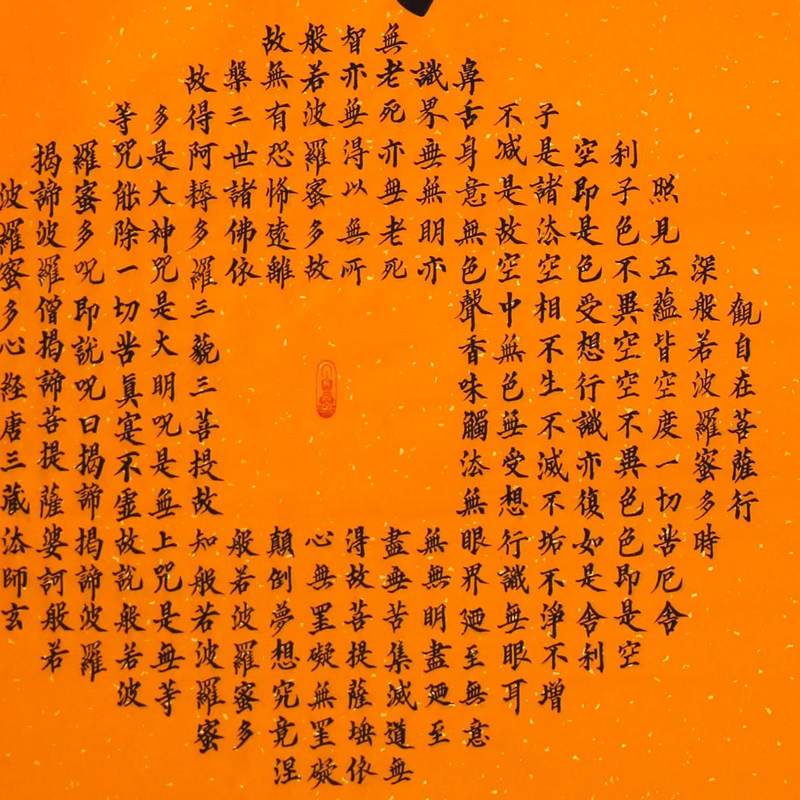 觀自在菩薩行
深般若波羅蜜多時
照見五蘊皆空度一切苦厄舍
利子色不異空空不異色色即是空
空即是色受想行識亦復如是舍利
子是諸法空相不生不滅不垢不淨不增
不減是故空中無色無受想行識無眼耳
鼻舌身意無色聲香味觸法無眼界廼至無意
識界無無明亦
無無明盡廼至
無老死亦無老死
盡無苦集滅道無
智亦無得以無所
得故菩提薩埵依
般若波羅蜜多故
心無罣礙無罣礙
故無有恐怖遠離
顛倒夢想究竟涅
槃三世諸佛依
般若波羅蜜多
故得阿耨多羅三藐三菩提故知般若波羅蜜
多是大神咒是大明咒是無上咒是無等
等咒能除一切苦真寔不虛故說般若波
羅蜜多呪即說呪曰揭諦揭諦波羅
揭諦波羅僧揭諦菩提薩婆訶般若
波羅蜜多心經唐三藏法師玄